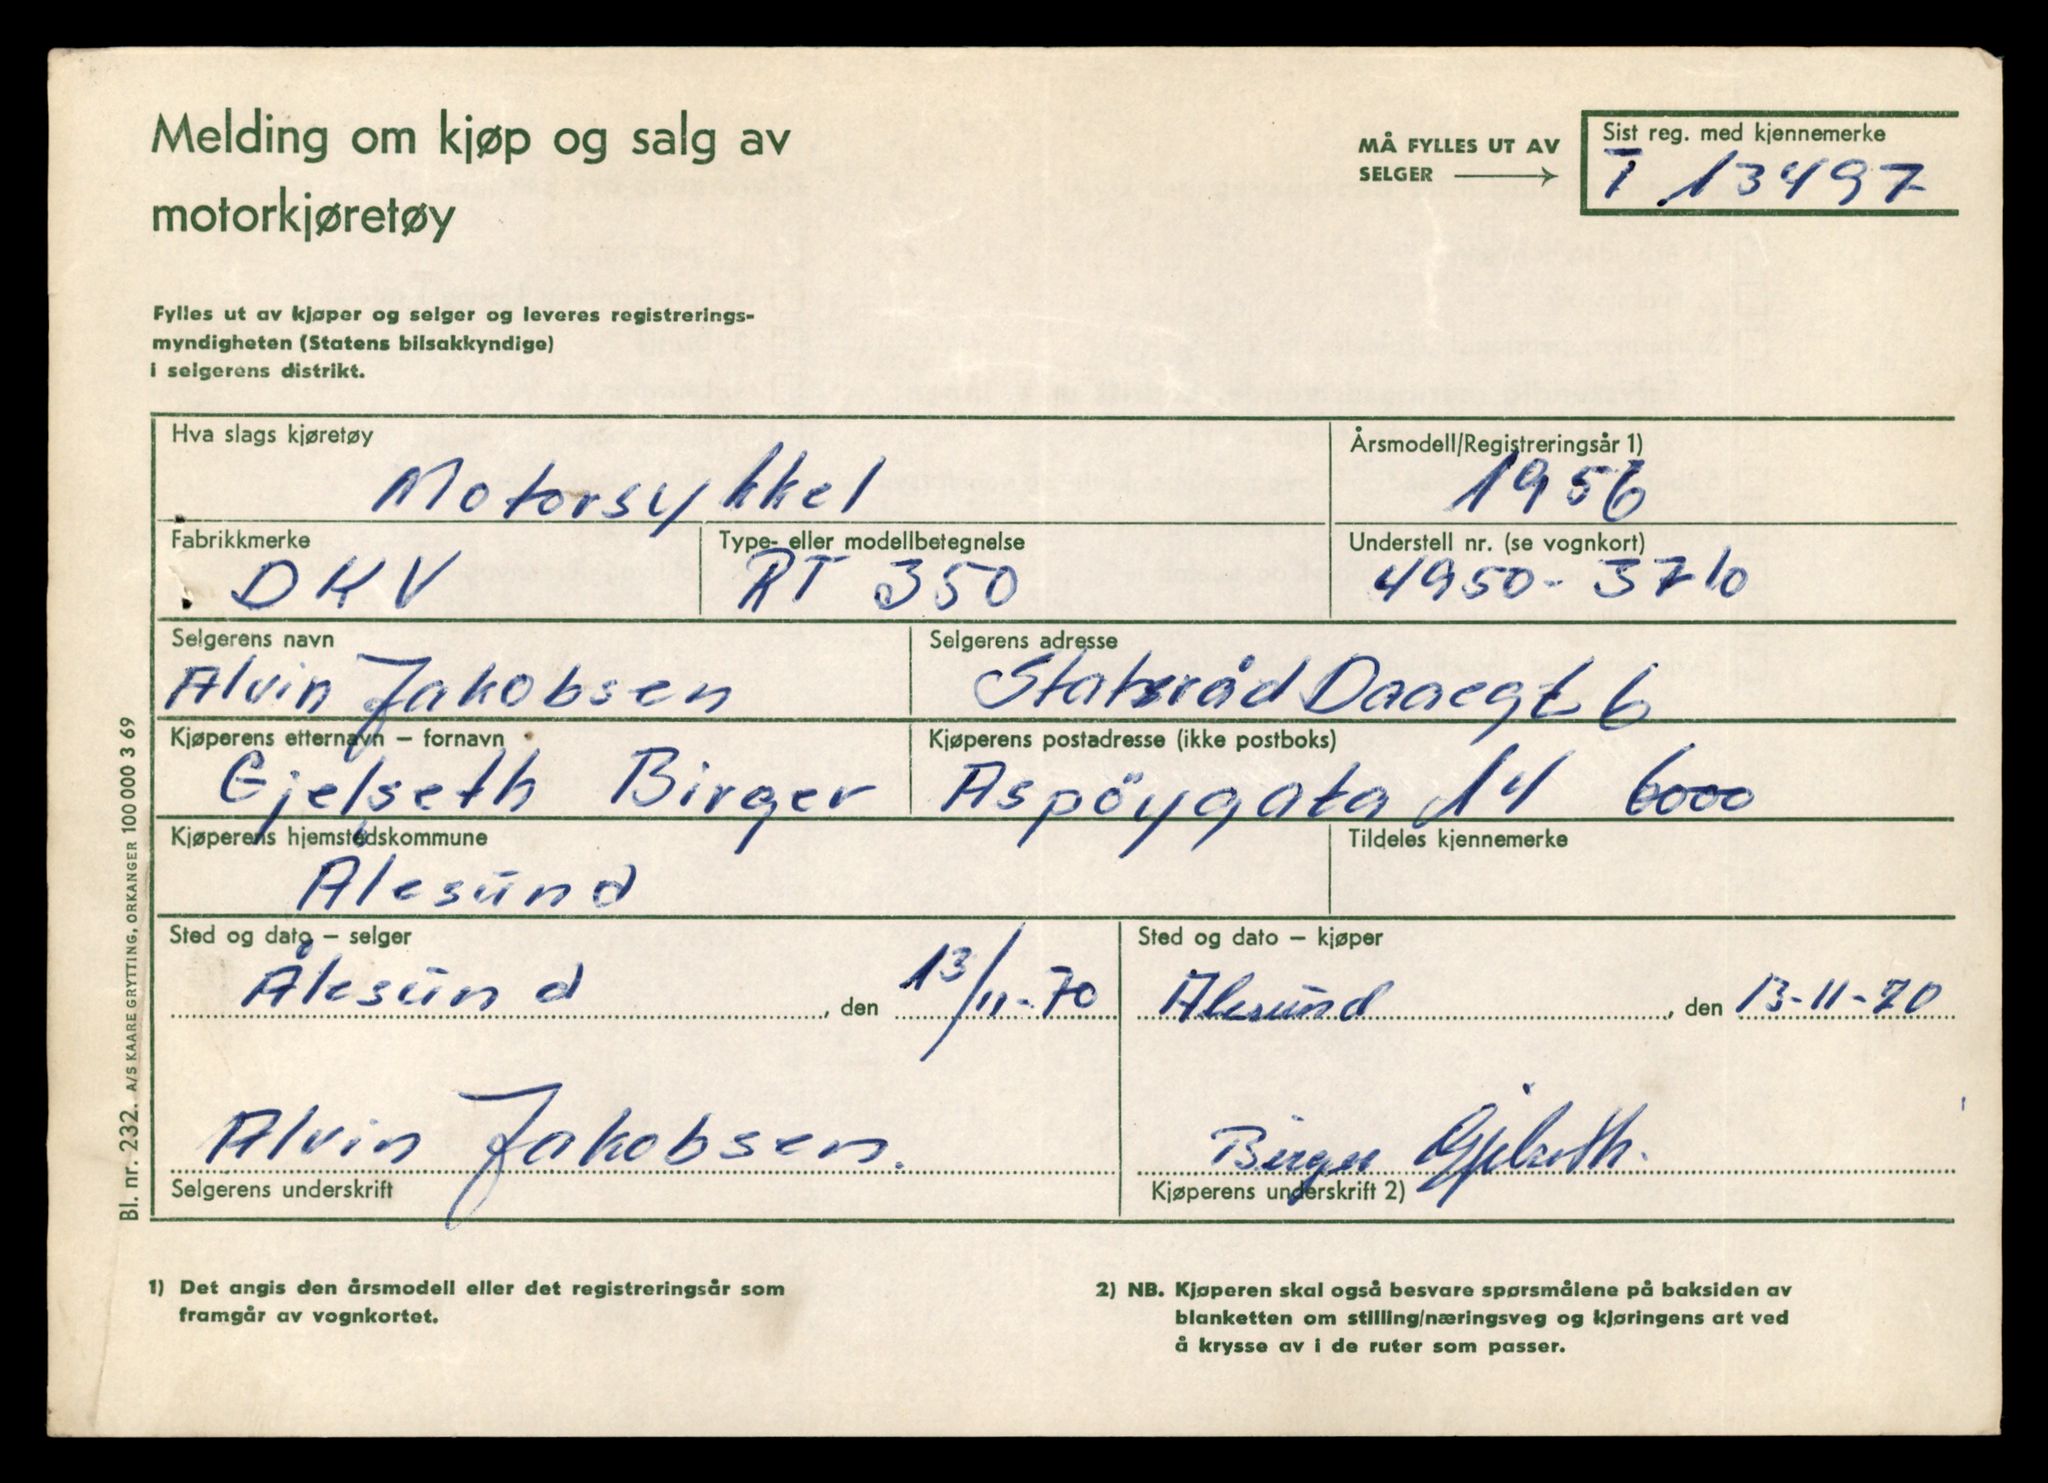 Melding om kjøp og salg av
motorkjøretøy
MÅ FYLLES UT AV
SELGER
Sist reg. med kjennemerke
T 13497
Fylles ut av kjøper og selger og leveres registrerings-
myndigheten (Statens bilsakkyndige)
i selgerens distrikt.
Hva slags kjøretøy
Motorsykkel
Årsmodell/Registreringsår 1)
1956
Fabrikkmerke
DKV
Type- eller modellbetegnelse
RT 350
Understell nr. (se vognkort)
4950-3710
Selgerens navn
Alvin Jakobsen
Selgerens adresse
Statsråd Daaegt 6
Kjøperens etternavn – fornavn
Gjelseth Birger
Kjøperens postadresse (ikke postboks)
Aspöygata 14 6000
Kjøperens hjemstedskommune
Ålesund
Tildeles kjennemerke
Sted og dato – selger
Ålesund, den 13/11-70
Sted og dato – kjøper
Ålesund, den 13-11-70
Alvin Jakobsen.
Selgerens underskrift
Birger Gjelseth.
Kjøperens underskrift 2)
1) Det angis den årsmodell eller det registreringsår som
framgår av vognkortet.
2) NB. Kjøperen skal også besvare spørsmålene på baksiden av
blanketten om stilling/næringsveg og kjøringens art ved
å krysse av i de ruter som passer.
Bl. nr. 232. A/S KAARE GRYTTING, ORKANGER 100 000 3 69